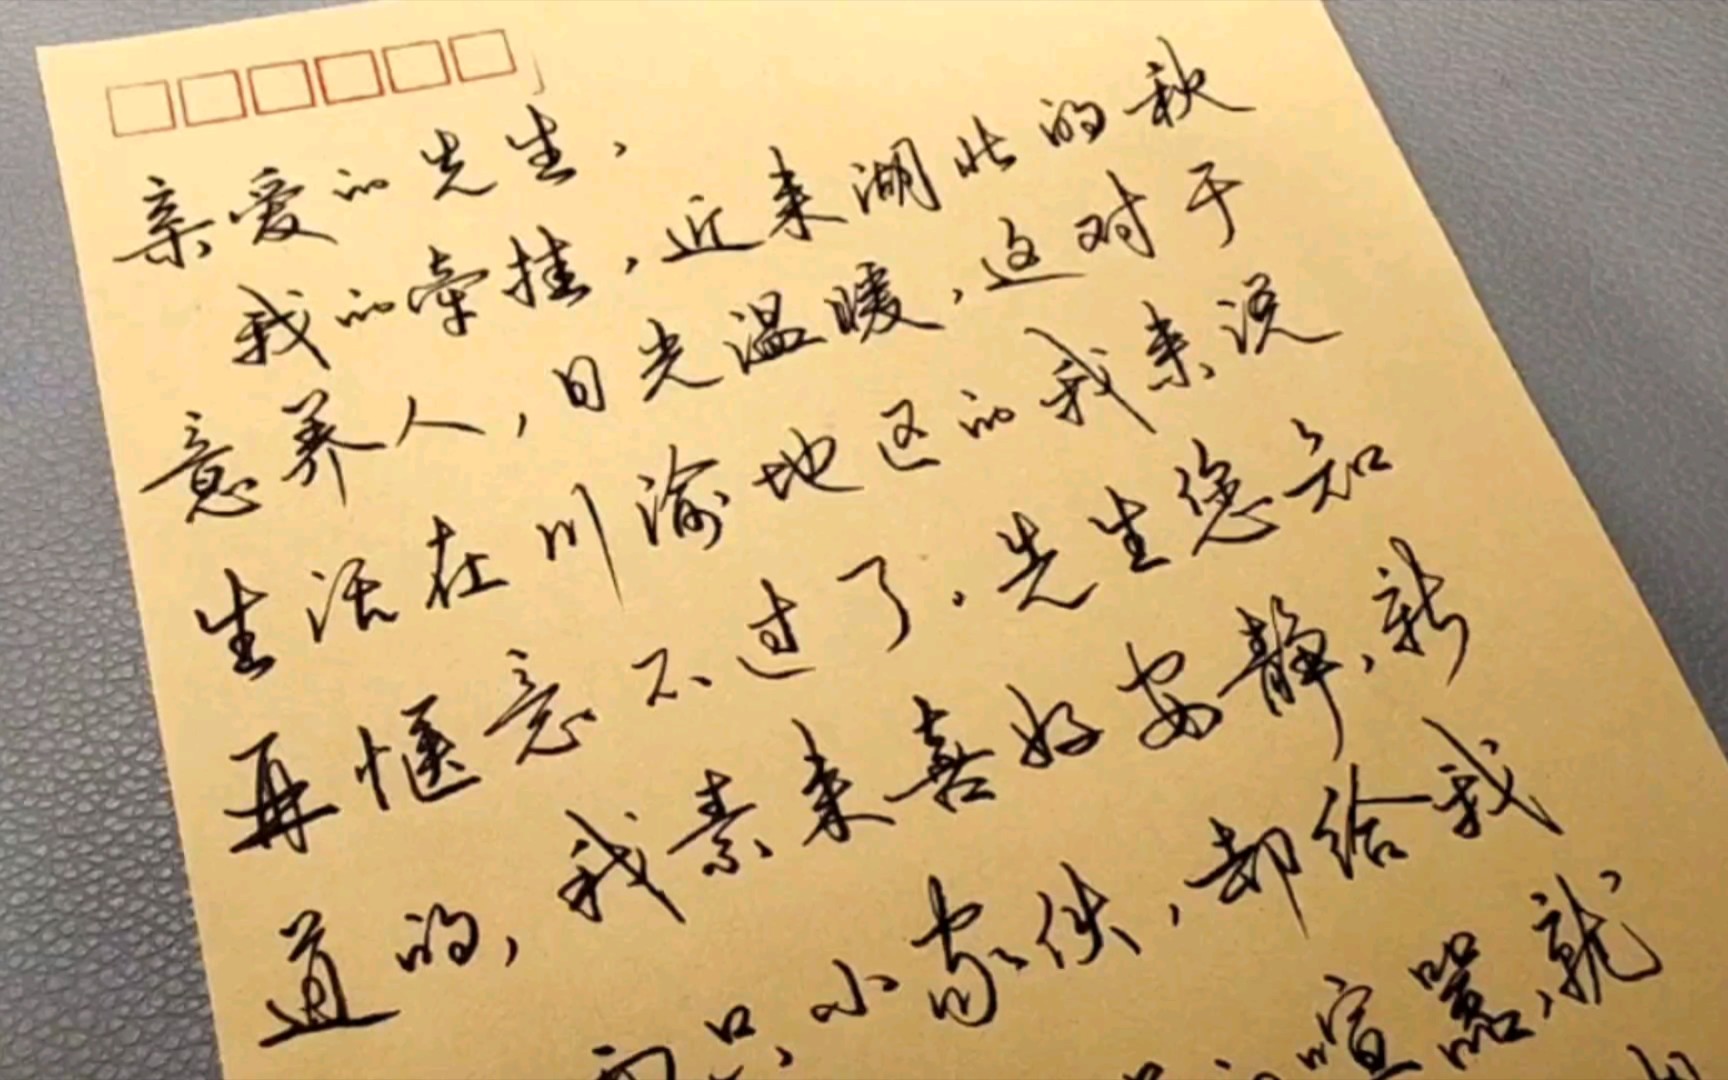 亲爱的先生，
我的牵挂，近来湖北的秋
意养人，日光温暖，这对于
生活在川渝地区的我来说
再惬意不过了。先生您知
道的，我素来喜好安静，新
两只小家伙，却给我
喧嚣，就